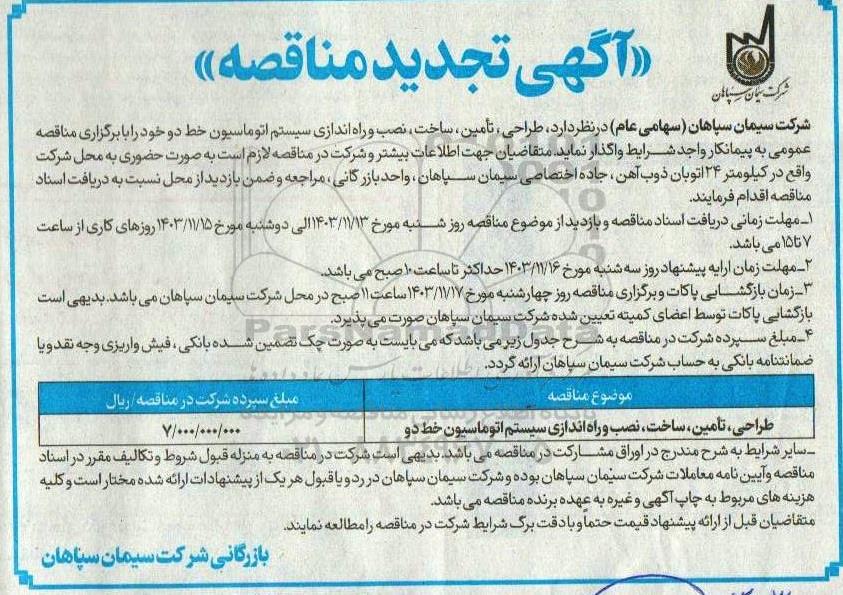 «آگهی تجدید مناقصه»
شرکت سیمان سپاهان
شرکت سیمان سپاهان (سهامی عام) در نظر دارد، طراحی، تأمین، ساخت، نصب و راه اندازی سیستم اتوماسیون خط دو خود را با برگزاری مناقصه
عمومی به پیمانکار واجد شرایط واگذار نماید. متقاضیان جهت اطلاعات بیشتر و شرکت در مناقصه لازم است به صورت حضوری به محل شرکت
واقع در کیلومتر ۲۴ اتوبان ذوب آهن، جاده اختصاصی سیمان سپاهان، واحد بازرگانی، مراجعه و ضمن بازدید از محل نسبت به دریافت اسناد
مناقصه اقدام فرمایند.
۱ـ مهلت زمانی دریافت اسناد مناقصه و بازدید از موضوع مناقصه روز شنبه مورخ ۱۴۰۳/۱۱/۱۳ الی دوشنبه مورخ ۱۴۰۳/۱۱/۱۵ روزهای کاری از ساعت
۷ تا ۱۵ می باشد.
۲ـ مهلت زمان ارایه پیشنهاد روز سه شنبه مورخ ۱۴۰۳/۱۱/۱۶ حداکثر تا ساعت ۱۰ صبح می باشد.
۳ـ زمان بازگشایی پاکات و برگزاری مناقصه روز چهارشنبه مورخ ۱۴۰۳/۱۱/۱۷ ساعت ۱۱ صبح در محل شرکت سیمان سپاهان می باشد. بدیهی است
بازگشایی پاکات توسط اعضای کمیته تعیین شده شرکت سیمان سپاهان صورت می پذیرد.
۴ـ مبلغ سپرده شرکت در مناقصه به شرح جدول زیر می باشد که می بایست به صورت چک تضمین شده بانکی، فیش واریزی وجه نقد و یا
ضمانتنامه بانکی به حساب شرکت سیمان سپاهان ارائه گردد.
موضوع مناقصه مبلغ سپرده شرکت در مناقصه / ریال
طراحی، تأمین، ساخت، نصب و راه اندازی سیستم اتوماسیون خط دو ۷/۰۰۰/۰۰۰/۰۰۰
ـ سایر شرایط به شرح مندرج در اوراق مشارکت در مناقصه می باشد. بدیهی است شرکت در مناقصه به منزله قبول شروط و تکالیف مقرر در اسناد
مناقصه و آیین نامه معاملات شرکت سیمان سپاهان بوده و شرکت سیمان سپاهان در رد و یا قبول هر یک از پیشنهادات ارائه شده مختار است و کلیه
هزینه های مربوط به چاپ آگهی و غیره به عهده برنده مناقصه می باشد.
متقاضیان قبل از ارائه پیشنهاد قیمت حتماً و با دقت برگ شرایط شرکت در مناقصه را مطالعه نمایند.
بازرگانی شرکت سیمان سپاهان
ParsNamadData